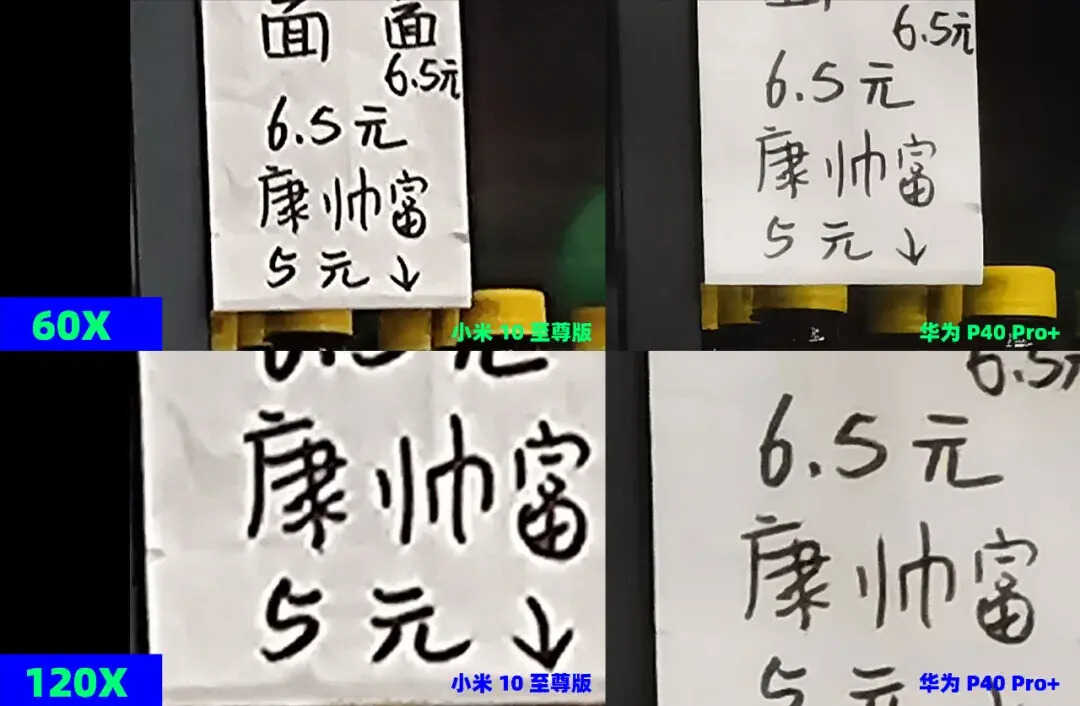 面 面
6.5元
6.5元
康帅富
5元↓
60X
小米 10 至尊版
6.5元
6.5元
康帅富
5元↓
华为 P40 Pro+
6.5元
康帅富
5元↓
120X
小米 10 至尊版
6.5元
6.5元
康帅富
5元
华为 P40 Pro+